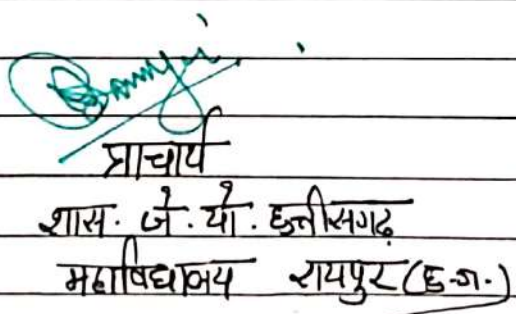 प्राचार्य
शास. जे. यो. छत्तीसगढ़
महाविद्यालय रायपुर (छ.ग.)